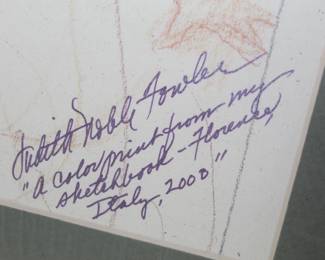 Judith Noble Fowler
"A color print from my
sketchbook - Florence,
Italy, 2000"